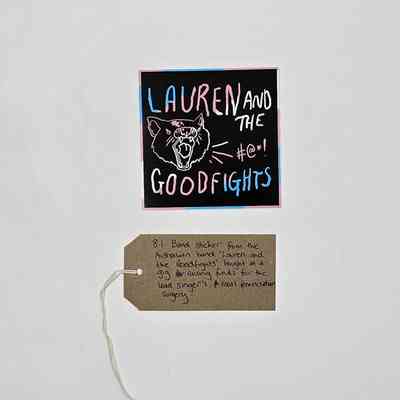 LAUREN AND
THE
#@*!
GOODFIGHTS
8.1 Band sticker from the
Australian band 'Lauren and
the Goodfights' bought at a
gig raising funds for the
lead singer's facial feminisation
surgery.